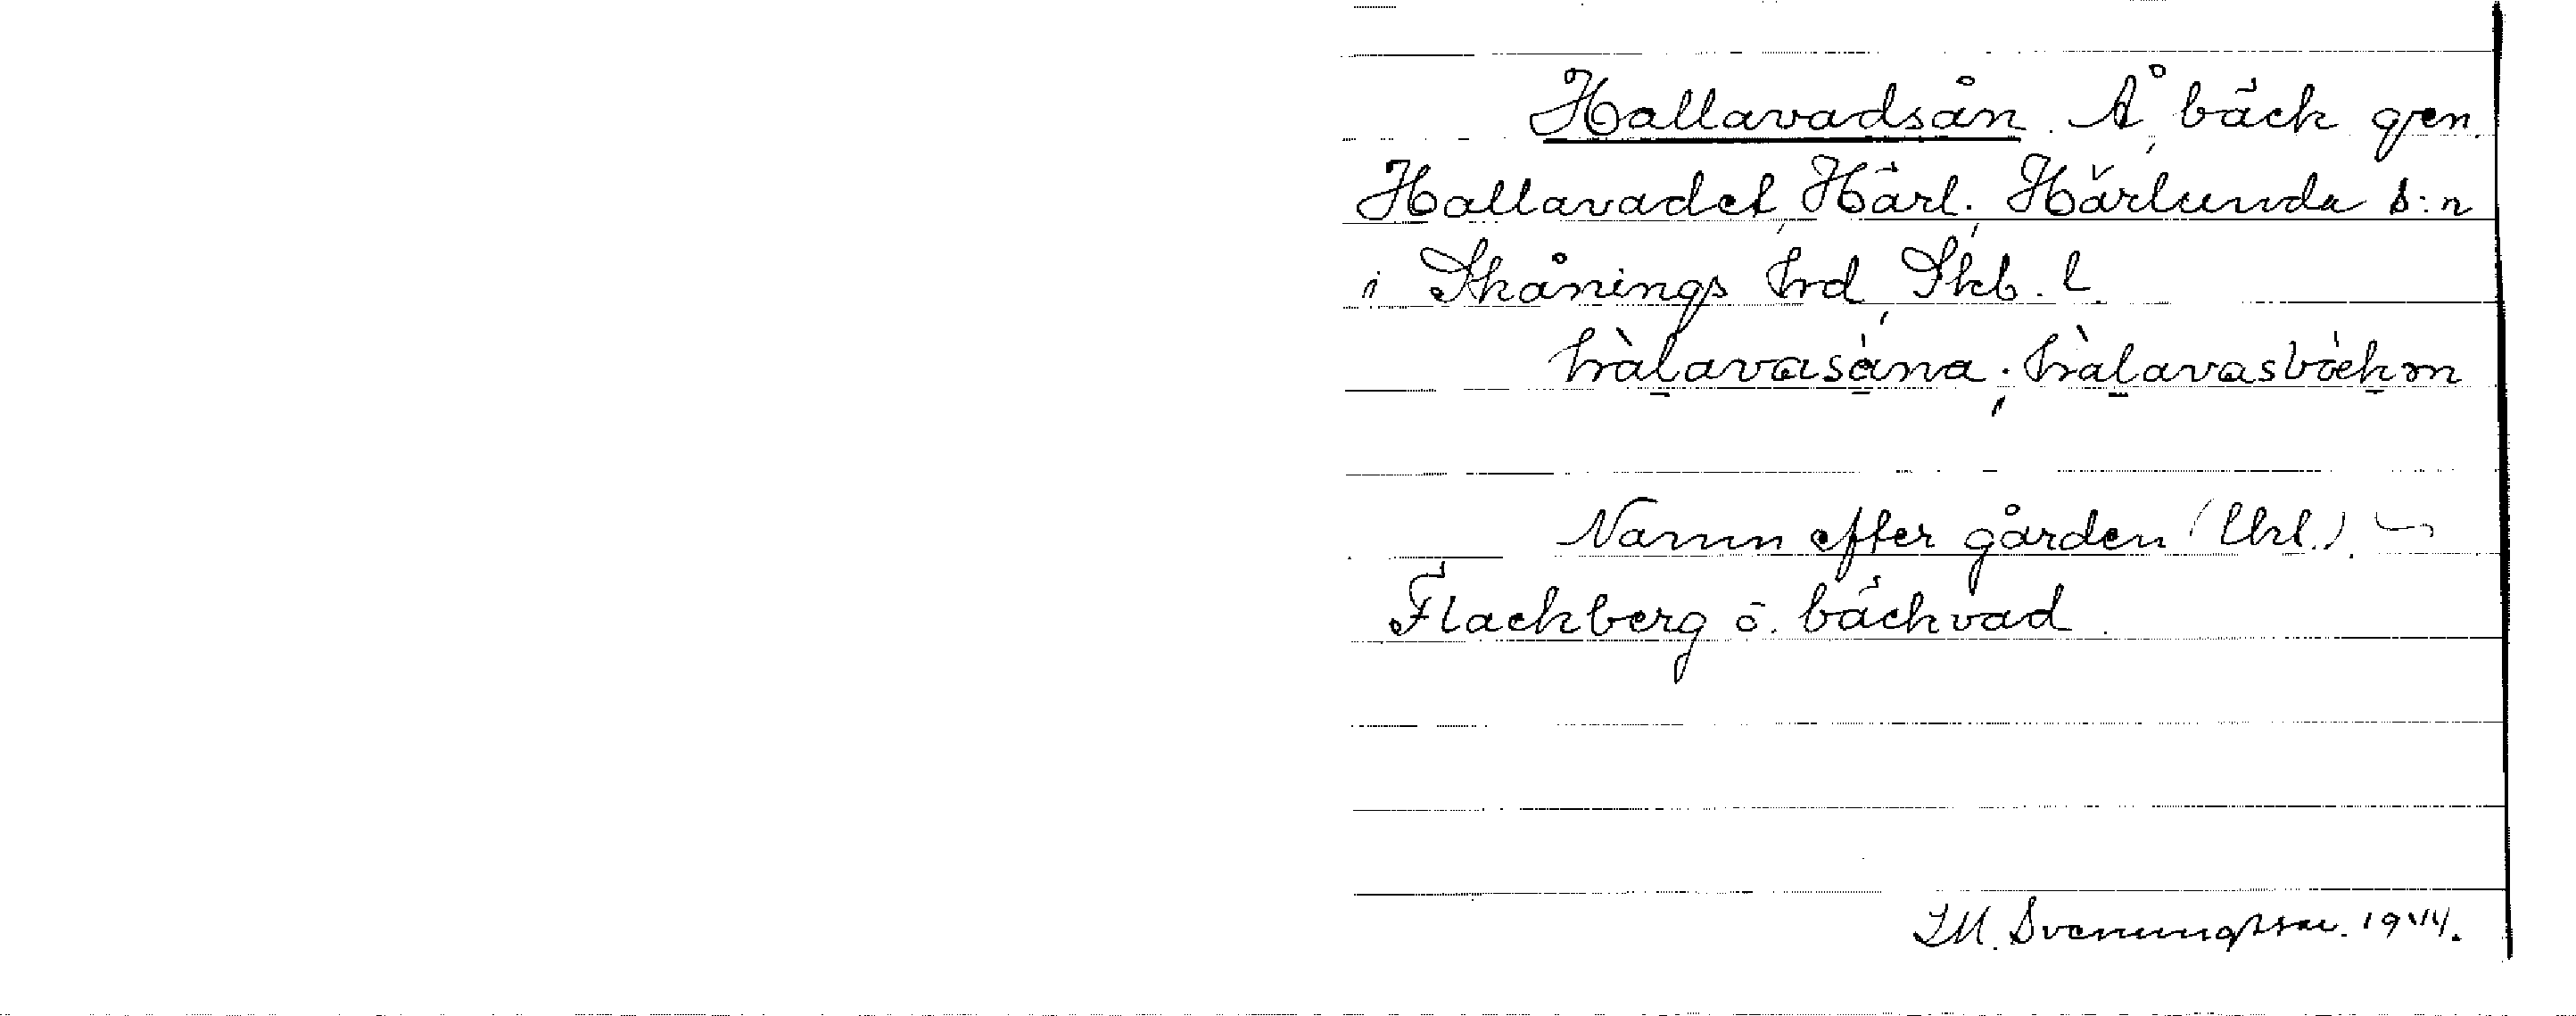 Hallavadsån. Å, bäck gen.
Hallavadet, Härl., Härlunda s:n
i Skånings hrd, Skb. l.
hàlavasána; hàlavasbäckɷn
Namn efter gården (Url.).
Flackberg o. bäckvad.
I.M. Svenungsson. 1944.